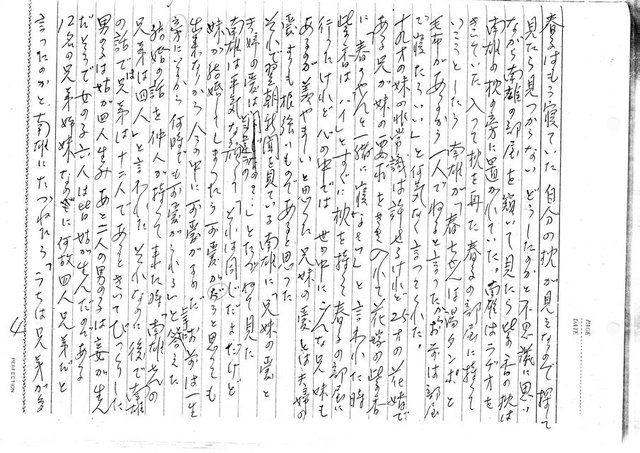 春子はもう寝ていた 自分の枕が見えないので探して
見たら見つからない どうしたのかと不思議に思い
ながら南雄の部屋を覗いて見たら紫香の枕は
南雄の枕の旁に置かれていた。南雄はラヂオを
きいていた 入って枕を再た春子の部屋に持って
いこうとしたら 南雄が「春ちゃんは湯タンポと
毛布があるから一人でねると言ったがお前は部屋
で寝たらいい」と何気なく言ってくれた。
十九才の妹の非常識は許せるけれど26才の花婿で
ある兄が妹の要求をきき入れて花嫁の紫香
に春ちゃんと一緒に寝なさい」と言われた時
紫香は「ハイ」とすぐに枕を持って春子の部屋に
行ったけれど心の中では世の中にこんな兄妹も
あるのが羨やましいと思った 兄妹の愛とは夫婦の
愛よりも根強いものであると思った
それで翌朝新聞を見ている南雄に「兄妹の愛と
夫婦の愛は と たづねて見た
南雄は平気な顔して「それは同じだよ だけど
妹が結婚してしまったら可愛がだろうと思っても
出来ないから今の中に可愛がるのだ お前は一生
旁にいるから何時でも可愛がられる」と答えた
結婚の話を仲人が持って来た時「南雄さんの
兄弟は四人」と言われた それなのに後で南雄
の話では兄弟は十二人であるときいてびっくりした
男の子は姑が四人生み あと二人の男の子は妾が生ん
だそうで女の子六人は皆姑が生んだのである
12名の兄弟姉妹なのに何故四人兄弟だと
言ったのかと 南雄にたづねたら「うちは兄弟が多
4
PAGE
DATE
PERFECTION